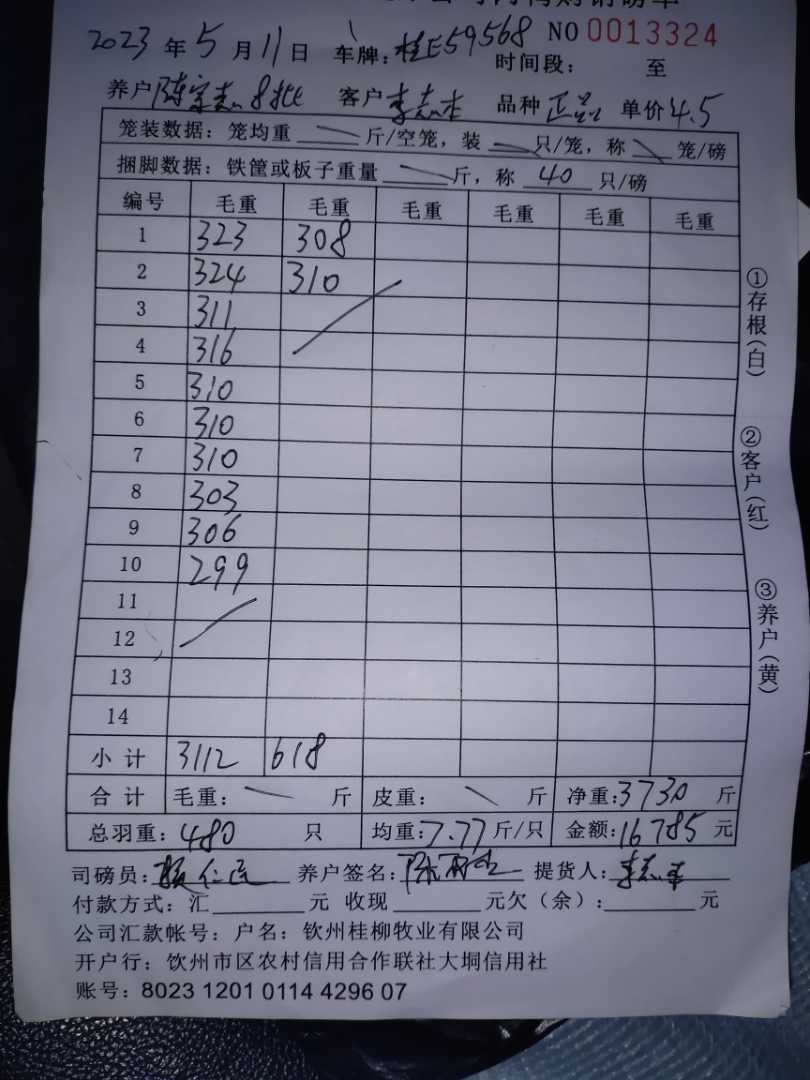 2023年5月11日 车牌:桂E59568 NO 0013324
时间段: 至
养户 陈 8批 客户 李志 品种 正品 单价 4.5
笼装数据: 笼均重 斤/空笼, 装 只/笼, 称 笼/磅
捆脚数据: 铁筐或板子重量 斤, 称 40 只/磅
编号 毛重 毛重 毛重 毛重 毛重 毛重
1 323 308
2 324 310
3 311
4 316
5 310
6 310
7 310
8 303
9 306
10 299
11
12
13
14
小计 3112 618
合计 毛重: 斤 皮重: 斤 净重:3730 斤
总羽重:480 只 均重:7.77斤/只 金额:16785元
①存根(白)
②客户(红)
③养户(黄)
司磅员: 养户签名:陈 提货人:李志
付款方式: 汇 元 收现 元欠(余): 元
公司汇款帐号: 户名: 钦州桂柳牧业有限公司
开户行: 钦州市区农村信用合作联社大垌信用社
账号: 8023 1201 0114 4296 07